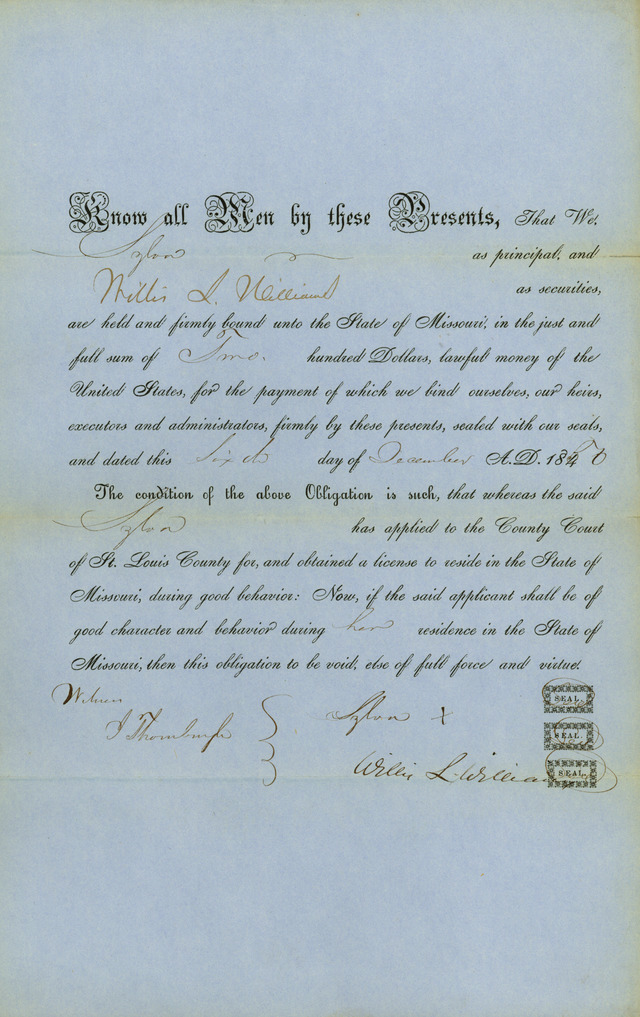 Know all Men by these Presents, That We,
Sylva as principal, and
Willis L. Williams as securities,
are held and firmly bound unto the State of Missouri, in the just and
full sum of Two hundred Dollars, lawful money of the
United States, for the payment of which we bind ourselves, our heirs,
executors and administrators, firmly by these presents, sealed with our seals,
and dated this Sixth day of December A.D. 18
The condition of the above Obligation is such, that whereas the said
Sylva has applied to the County Court
of St. Louis County for, and obtained a license to reside in the State of
Missouri, during good behavior: Now, if the said applicant shall be of
good character and behavior during her residence in the State of
Missouri, then this obligation to be void, else of full force and virtue.
Witness SEAL.
J Thornburgh Sylva X SEAL.
Willis L. Williams SEAL.